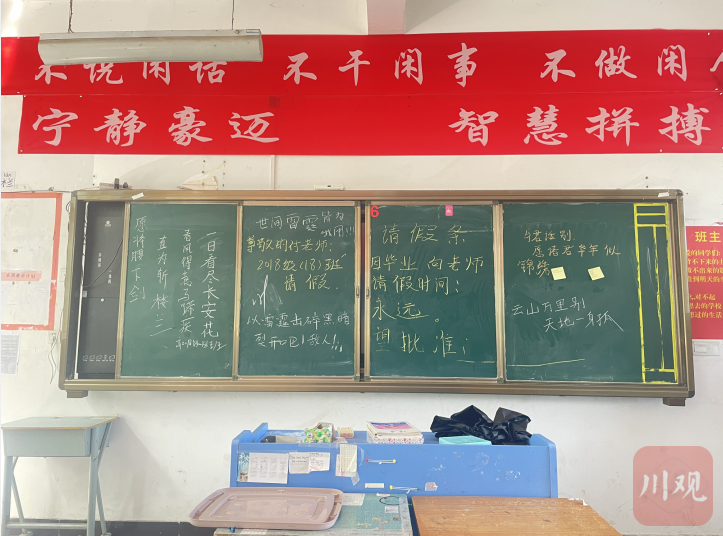 不说闲话 不干闲事 不做闲
宁静豪迈 智慧拼搏
愿将腰下剑
直为斩楼兰
春风得意马蹄疾
一日看尽长安花
世间雷霆皆为
尊敬的付老师:
2018级(18)班
请假.
以雷霆击碎黑暗
裂开吧!敌人!!
6
请假条
因毕业 向老师
请假时间:
永远
望批准;
与君此别
愿诸君华年似
锦绣
云山万里别
天地一身孤
班主
川观